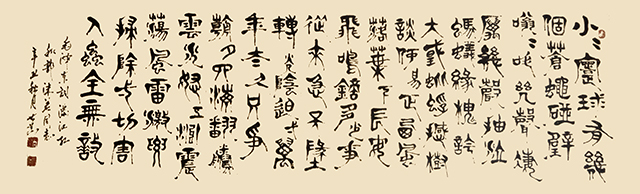 小小寰球有幾
個蒼蠅碰壁
嗡嗡叫幾聲淒
厲幾聲抽泣
螞蟻緣槐誇
大國蚍蜉撼樹
談何易正西風
落葉下長安
飛鳴鏑多少事
從來急天地
轉光陰迫一萬
年太久只爭
朝夕四海翻騰
雲水怒五洲震
蕩風雷激要
掃除一切害
人蟲全無敵
東詞滿江紅
同志
辛丑秋月